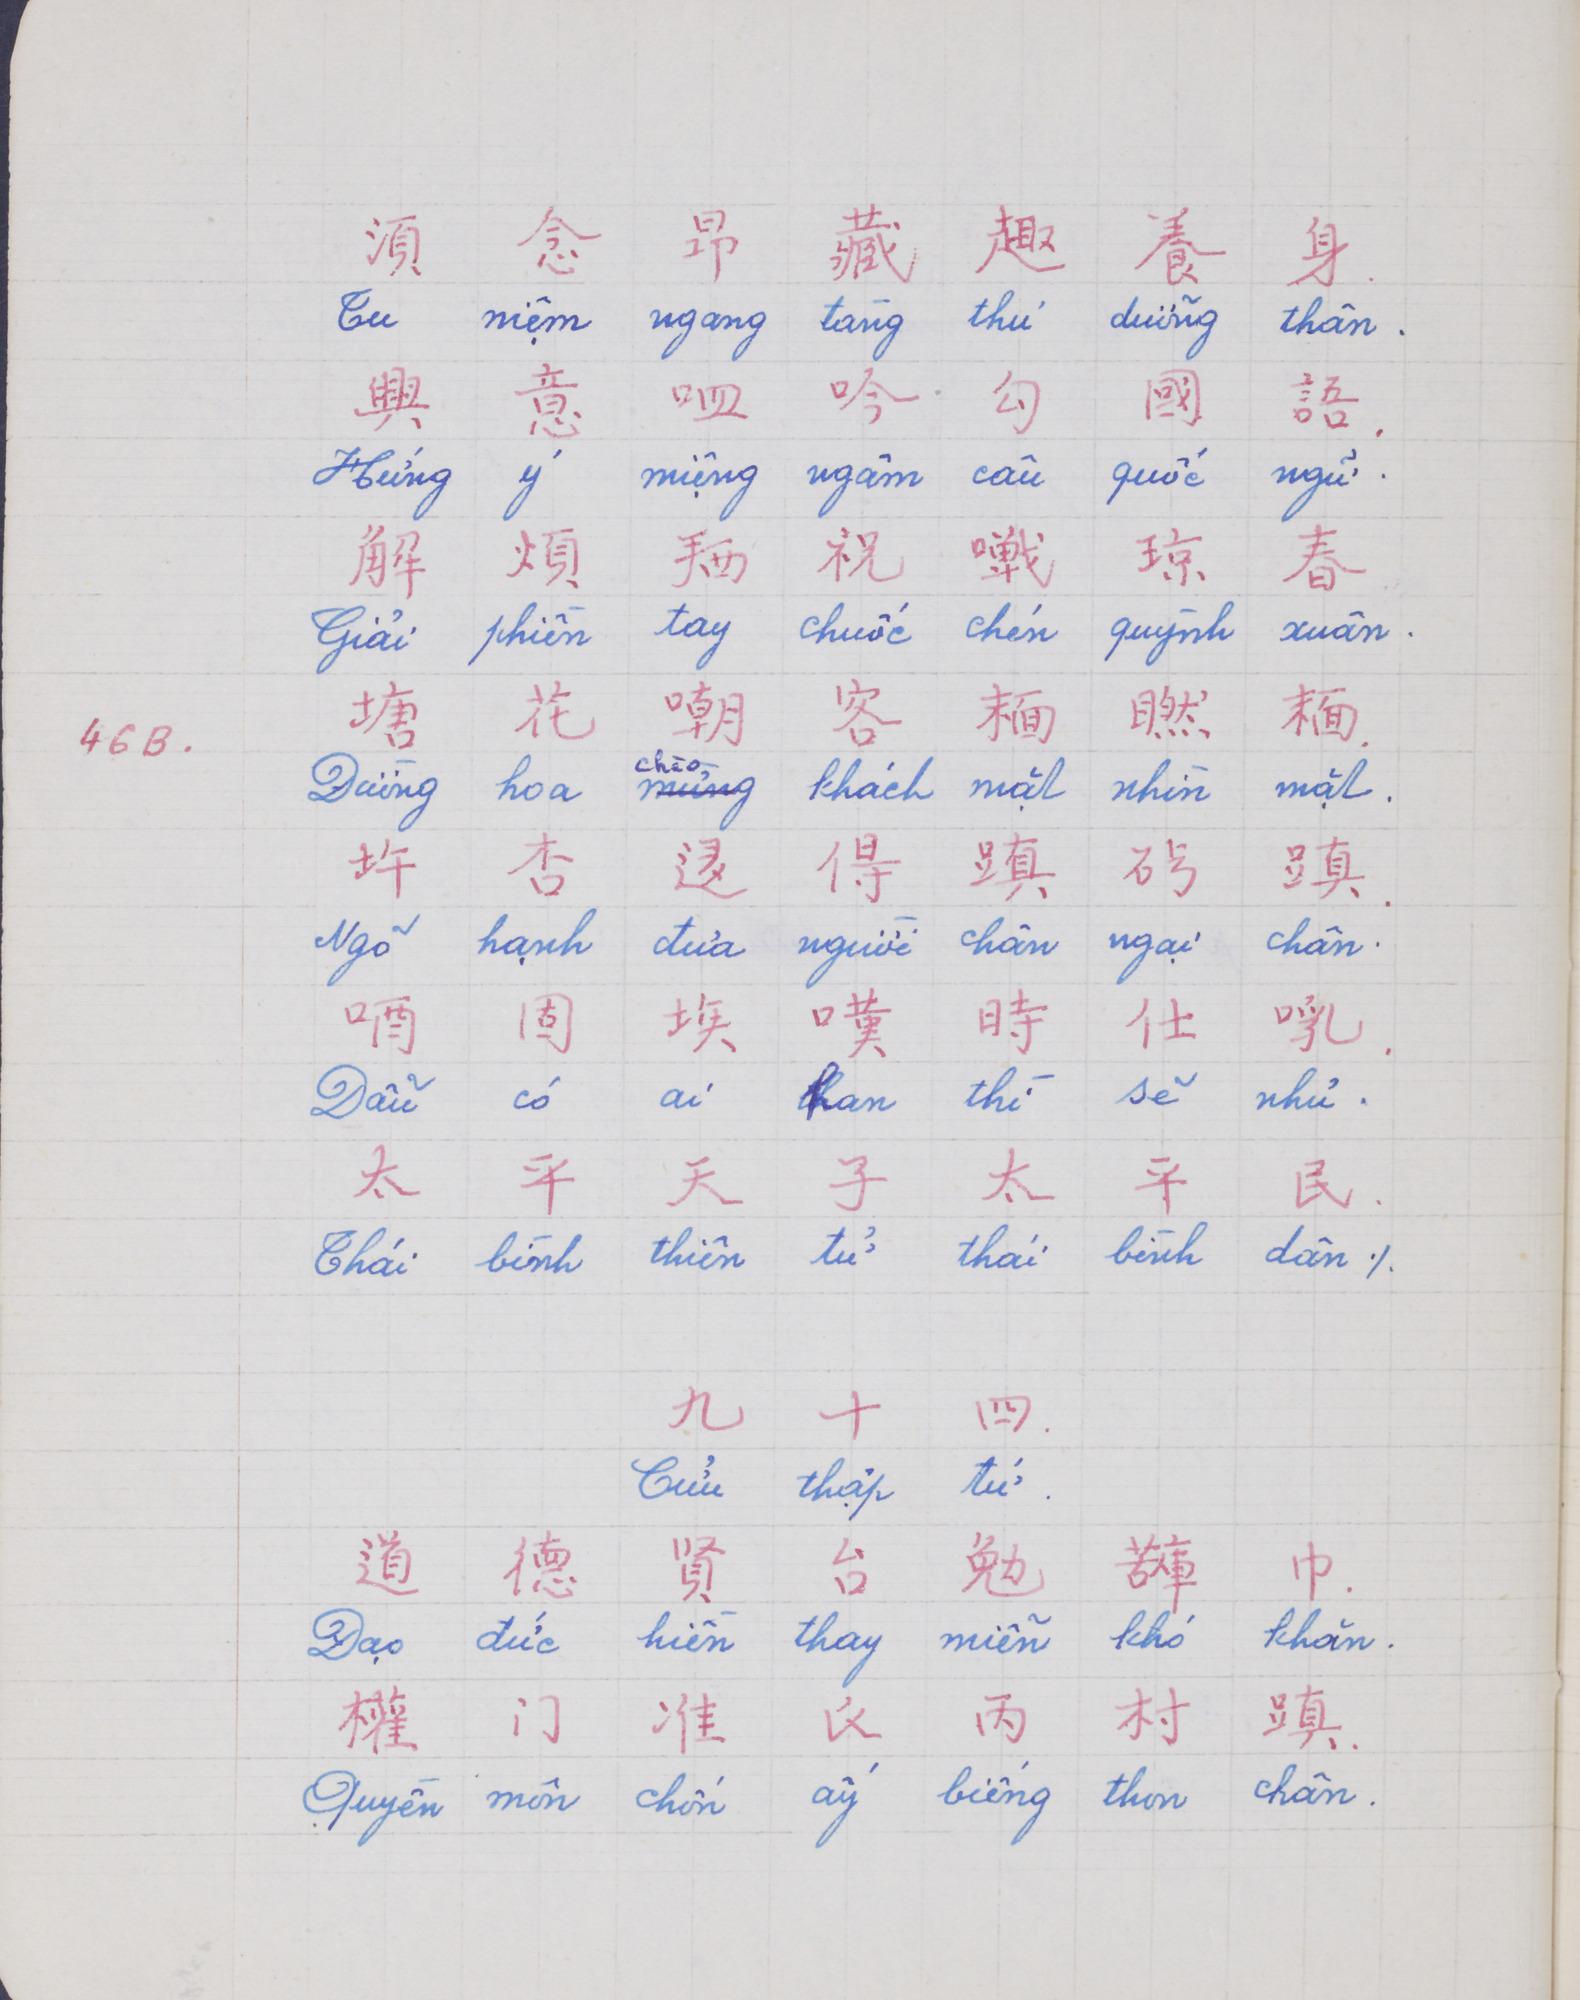 須 念 昂 藏 趣 養 身.
Tu niệm ngang tàng thú dưỡng thân.
興 意 𠰘 吟 勾 國 語.
Hứng ý miệng ngâm câu quốc ngữ.
解 煩 𢬣 祝 𡃹 琼 春
Giải phiền tay chuốc chén quỳnh xuân.
塘 花 嘲 容 𩈘 𥊚 𩈘.
46B.
chào
Đường hoa mừng khách mặt nhìn mặt.
圷 杏 迻 得 蹎 砖 蹎.
Ngõ hạnh đưa người chân ngại chân.
唒 固 埃 嘆 時 仕 𠳿.
Dẫu có ai than thì sẽ nhủ.
太 平 天 子 太 平 民.
Thái bình thiên tử thái bình dân ./.
九 十 四.
Cửu thập tứ.
道 德 賢 台 勉 巾.
Đạo đức hiền thay miễn khó khăn.
權 门 准 氏 丙 村 蹎.
Quyền môn chốn ấy biếng thon chân.